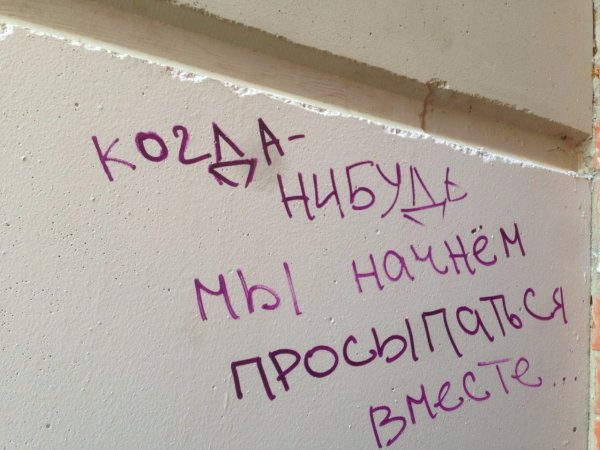 когда-
нибудь
мы начнём
просыпаться
вместе...